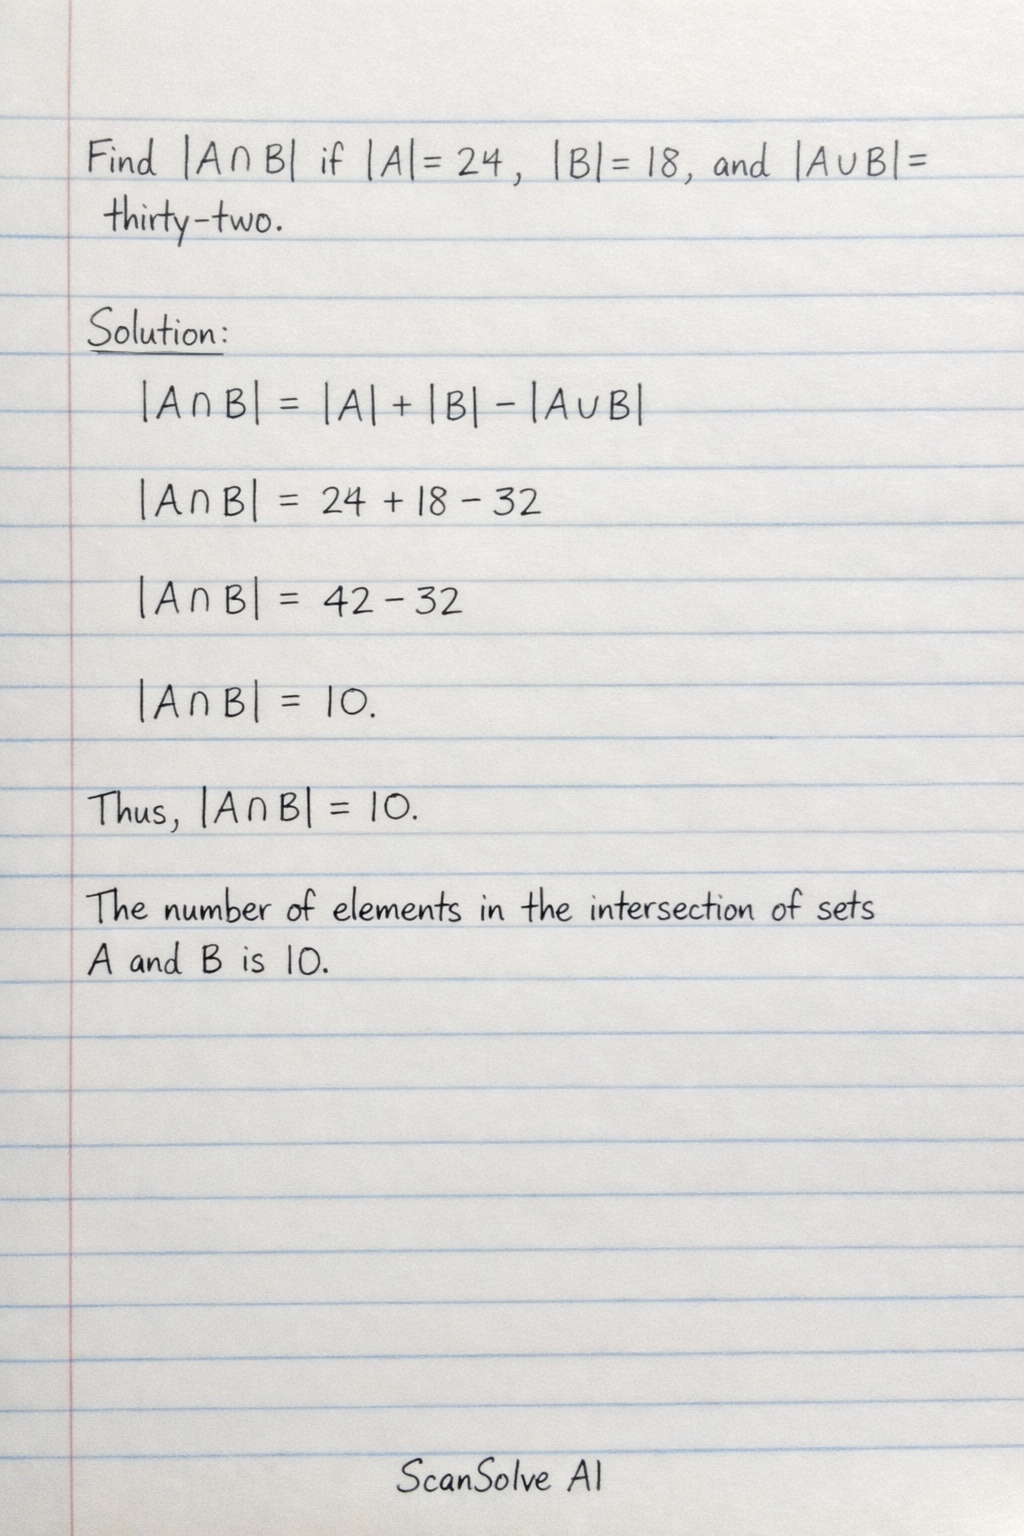 Find |A∩B| if |A|= 24, |B|= 18, and |A∪B|=
thirty-two.
Solution:
|A∩B| = |A| + |B| − |A∪B|
|A∩B| = 24 + 18 − 32
|A∩B| = 42 − 32
|A∩B| = 10.
Thus, |A∩B| = 10.
The number of elements in the intersection of sets
A and B is 10.
ScanSolve AI